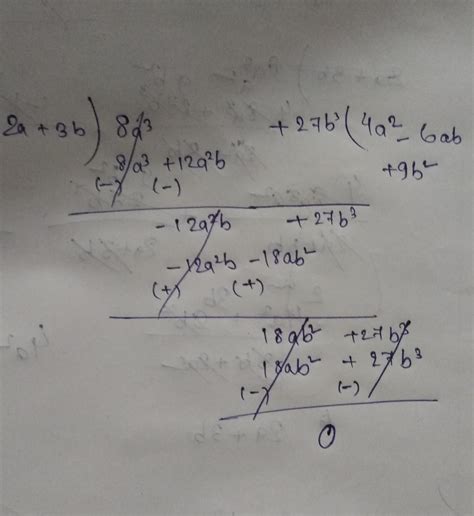 2a + 3b ) 8a³ + 27b³ ( 4a² - 6ab
8a³ + 12a²b + 9b²
(-) (-)
-12a²b + 27b³
-12a²b - 18ab²
(+) (+)
18ab² + 27b³
18ab² + 27b³
(-) (-)
0